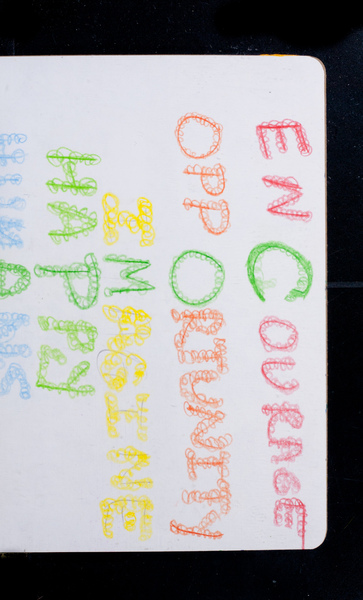 ENCOURAGE
OPPORTUNITY
IMAGINE
HAPPY